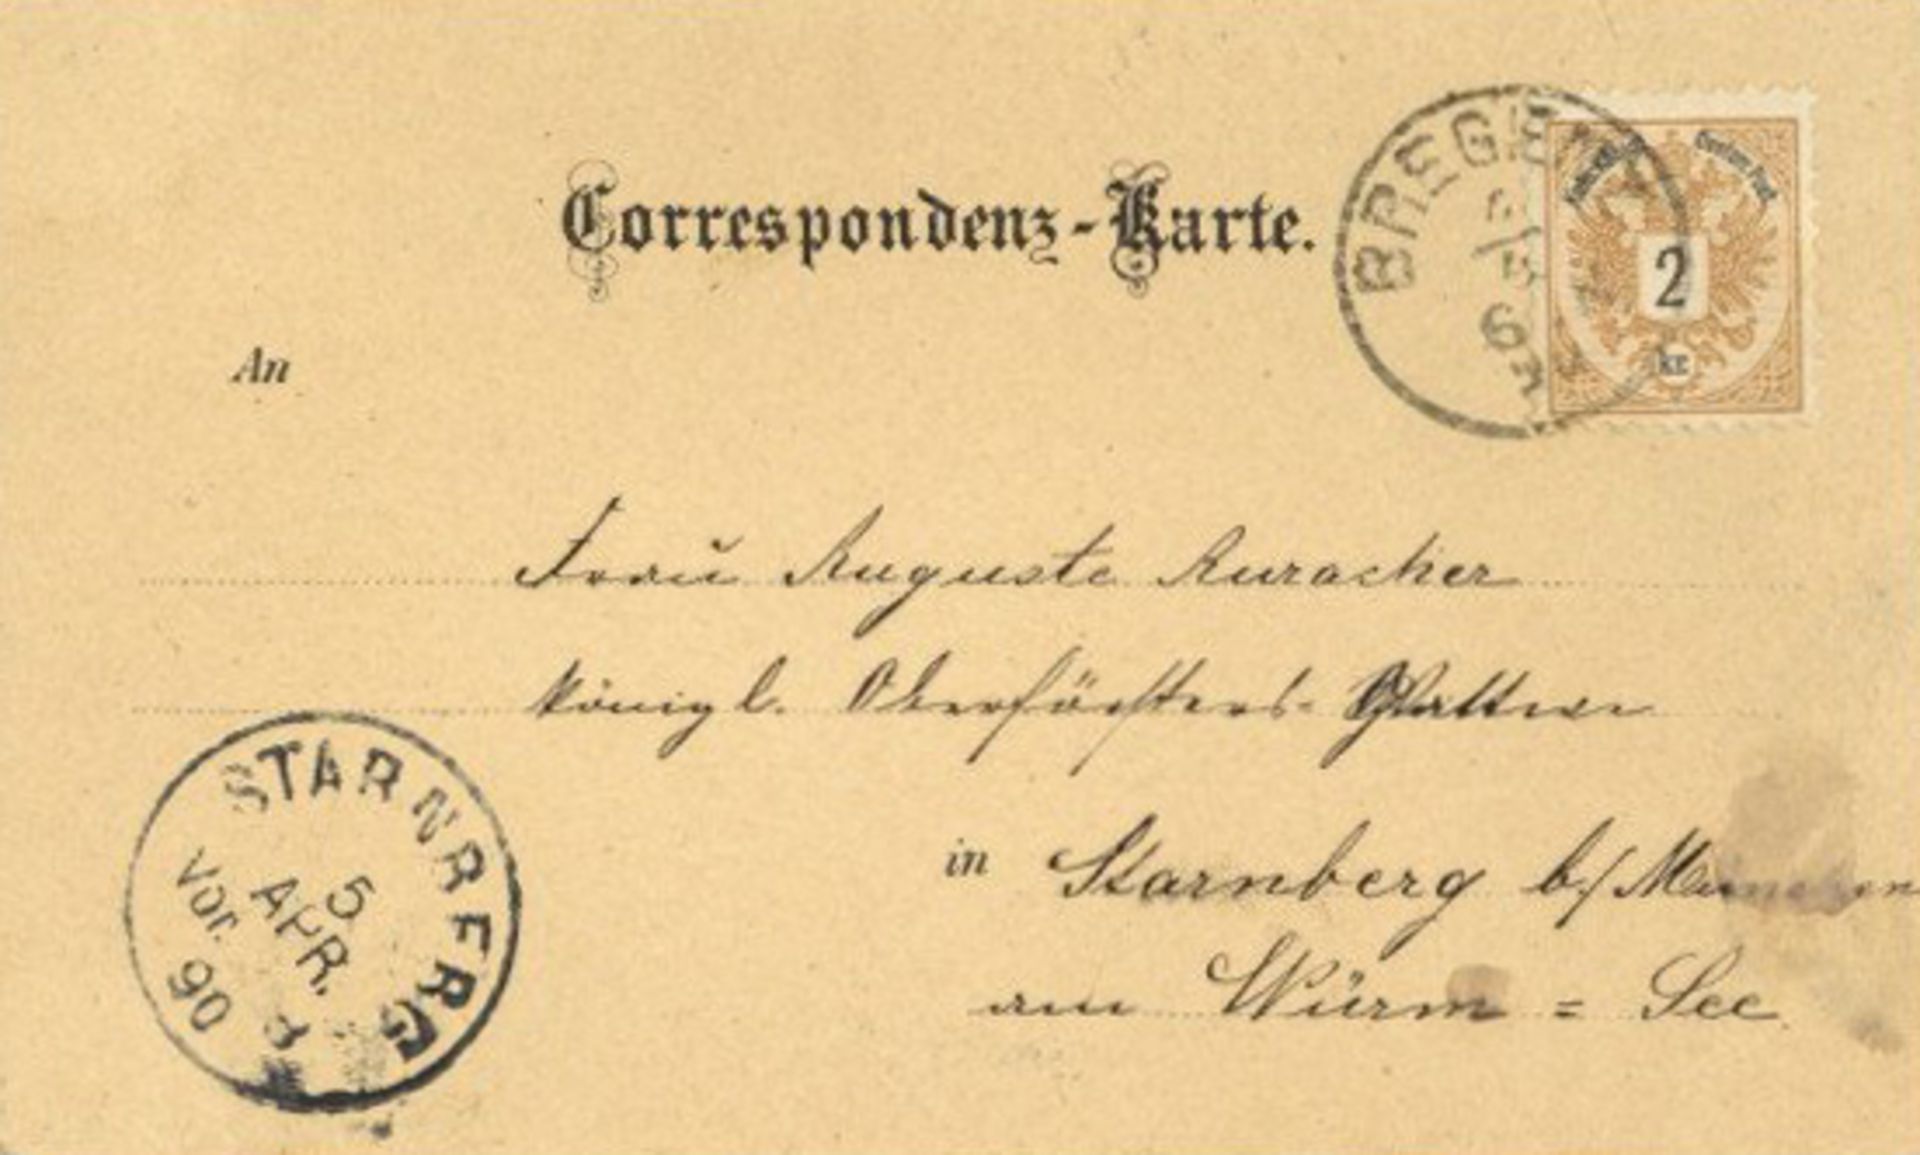 Correspondenz-Karte.
BREGENZ
2
kr.
An
Frau Auguste Auracher
königl. Oberförsters-Gattin
in Starnberg b/ München
am Würm = See
STARNBERG
5
APR.
Vor. 8
90